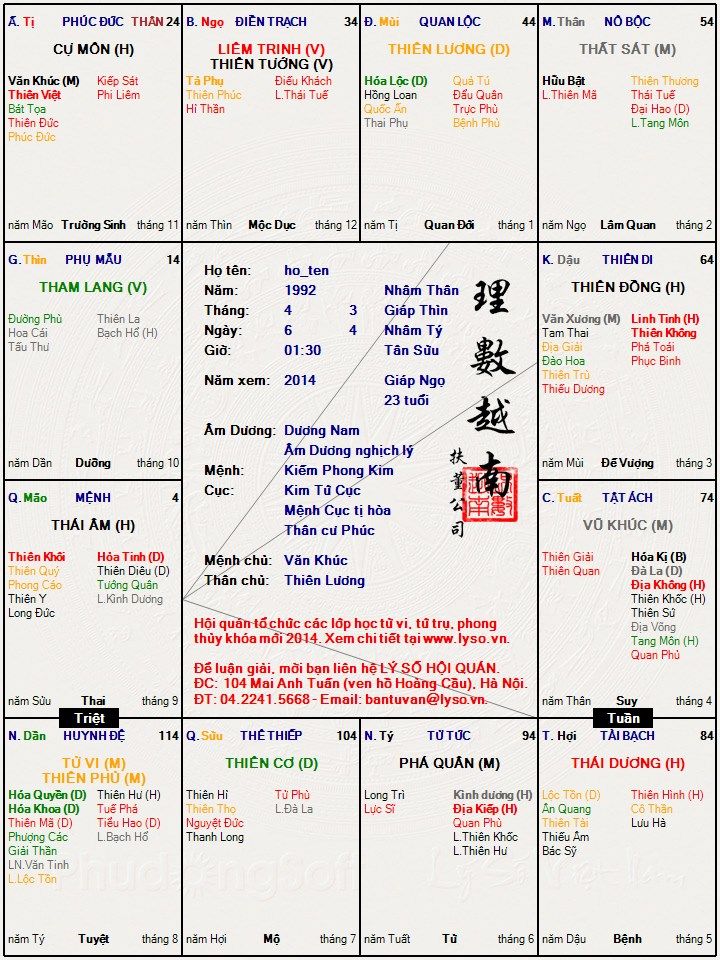 Ấ. Tị PHÚC ĐỨC THÂN 24
CỰ MÔN (H)
Văn Khúc (M) Kiếp Sát
Thiên Việt Phi Liêm
Bát Tọa
Thiên Đức
Phúc Đức
năm Mão Trường Sinh tháng 11
B. Ngọ ĐIỀN TRẠCH 34
LIÊM TRINH (V)
THIÊN TƯỚNG (V)
Tả Phụ Điếu Khách
Thiên Phúc L.Thái Tuế
Hỉ Thần
năm Thìn Mộc Dục tháng 12
Đ. Mùi QUAN LỘC 44
THIÊN LƯƠNG (D)
Hóa Lộc (D) Quả Tú
Hồng Loan Đẩu Quân
Quốc Ấn Trực Phù
Thai Phụ Bệnh Phù
năm Tị Quan Đới tháng 1
M. Thân NÔ BỘC 54
THẤT SÁT (M)
Hữu Bật Thiên Thương
L.Thiên Mã Thái Tuế
Đại Hao (D)
L.Tang Môn
năm Ngọ Lâm Quan tháng 2
G. Thìn PHỤ MẪU 14
THAM LANG (V)
Đường Phù Thiên La
Hoa Cái Bạch Hổ (H)
Tấu Thư
năm Dần Dưỡng tháng 10
Họ tên: ho_ten
Năm: 1992 Nhâm Thân
Tháng: 4 3 Giáp Thìn
Ngày: 6 4 Nhâm Tý
Giờ: 01:30 Tân Sửu
Năm xem: 2014 Giáp Ngọ
23 tuổi
Âm Dương: Dương Nam
Âm Dương nghịch lý
Mệnh: Kiếm Phong Kim
Cục: Kim Tứ Cục
Mệnh Cục tị hòa
Thân cư Phúc
Mệnh chủ: Văn Khúc
Thân chủ: Thiên Lương
理數越南
扶董公司
Hội quán tổ chức các lớp học tử vi, tứ trụ, phong
thủy khóa mới 2014. Xem chi tiết tại www.lyso.vn.
Để luận giải, mời bạn liên hệ LÝ SỐ HỘI QUÁN.
ĐC: 104 Mai Anh Tuấn (ven hồ Hoàng Cầu), Hà Nội.
ĐT: 04.2241.5668 - Email: bantuvan@lyso.vn.
K. Dậu THIÊN DI 64
THIÊN ĐỒNG (H)
Văn Xương (M) Linh Tinh (H)
Tam Thai Thiên Không
Địa Giải Phá Toái
Đào Hoa Phục Binh
Thiên Trù
Thiếu Dương
năm Mùi Đế Vượng tháng 3
Q. Mão MỆNH 4
THÁI ÂM (H)
Thiên Khôi Hỏa Tinh (D)
Thiên Quý Thiên Diêu (D)
Phong Cáo Tướng Quân
Thiên Y L.Kình Dương
Long Đức
năm Sửu Thai tháng 9
Triệt
C. Tuất TẬT ÁCH 74
VŨ KHÚC (M)
Thiên Giải Hóa Kị (B)
Thiên Quan Đà La (D)
Địa Không (H)
Thiên Khốc (H)
Thiên Sứ
Địa Võng
Tang Môn (H)
Quan Phủ
năm Thân Suy tháng 4
Tuần
N. Dần HUYNH ĐỆ 114
TỬ VI (M)
THIÊN PHỦ (M)
Hóa Quyền (D) Thiên Hư (H)
Hóa Khoa (D) Tuế Phá
Thiên Mã (D) Tiểu Hao (D)
Phượng Các L.Bạch Hổ
Giải Thần
LN.Văn Tinh
L.Lộc Tồn
năm Tý Tuyệt tháng 8
Q. Sửu THÊ THIẾP 104
THIÊN CƠ (D)
Thiên Hỉ Tử Phù
Thiên Thọ L.Đà La
Nguyệt Đức
Thanh Long
năm Hợi Mộ tháng 7
N. Tý TỬ TỨC 94
PHÁ QUÂN (M)
Long Trì Kình dương (H)
Lực Sĩ Địa Kiếp (H)
Quan Phù
L.Thiên Khốc
L.Thiên Hư
năm Tuất Tử tháng 6
T. Hợi TÀI BẠCH 84
THÁI DƯƠNG (H)
Lộc Tồn (D) Thiên Hình (H)
Ân Quang Cô Thần
Thiên Tài Lưu Hà
Thiếu Âm
Bác Sỹ
năm Dậu Bệnh tháng 5